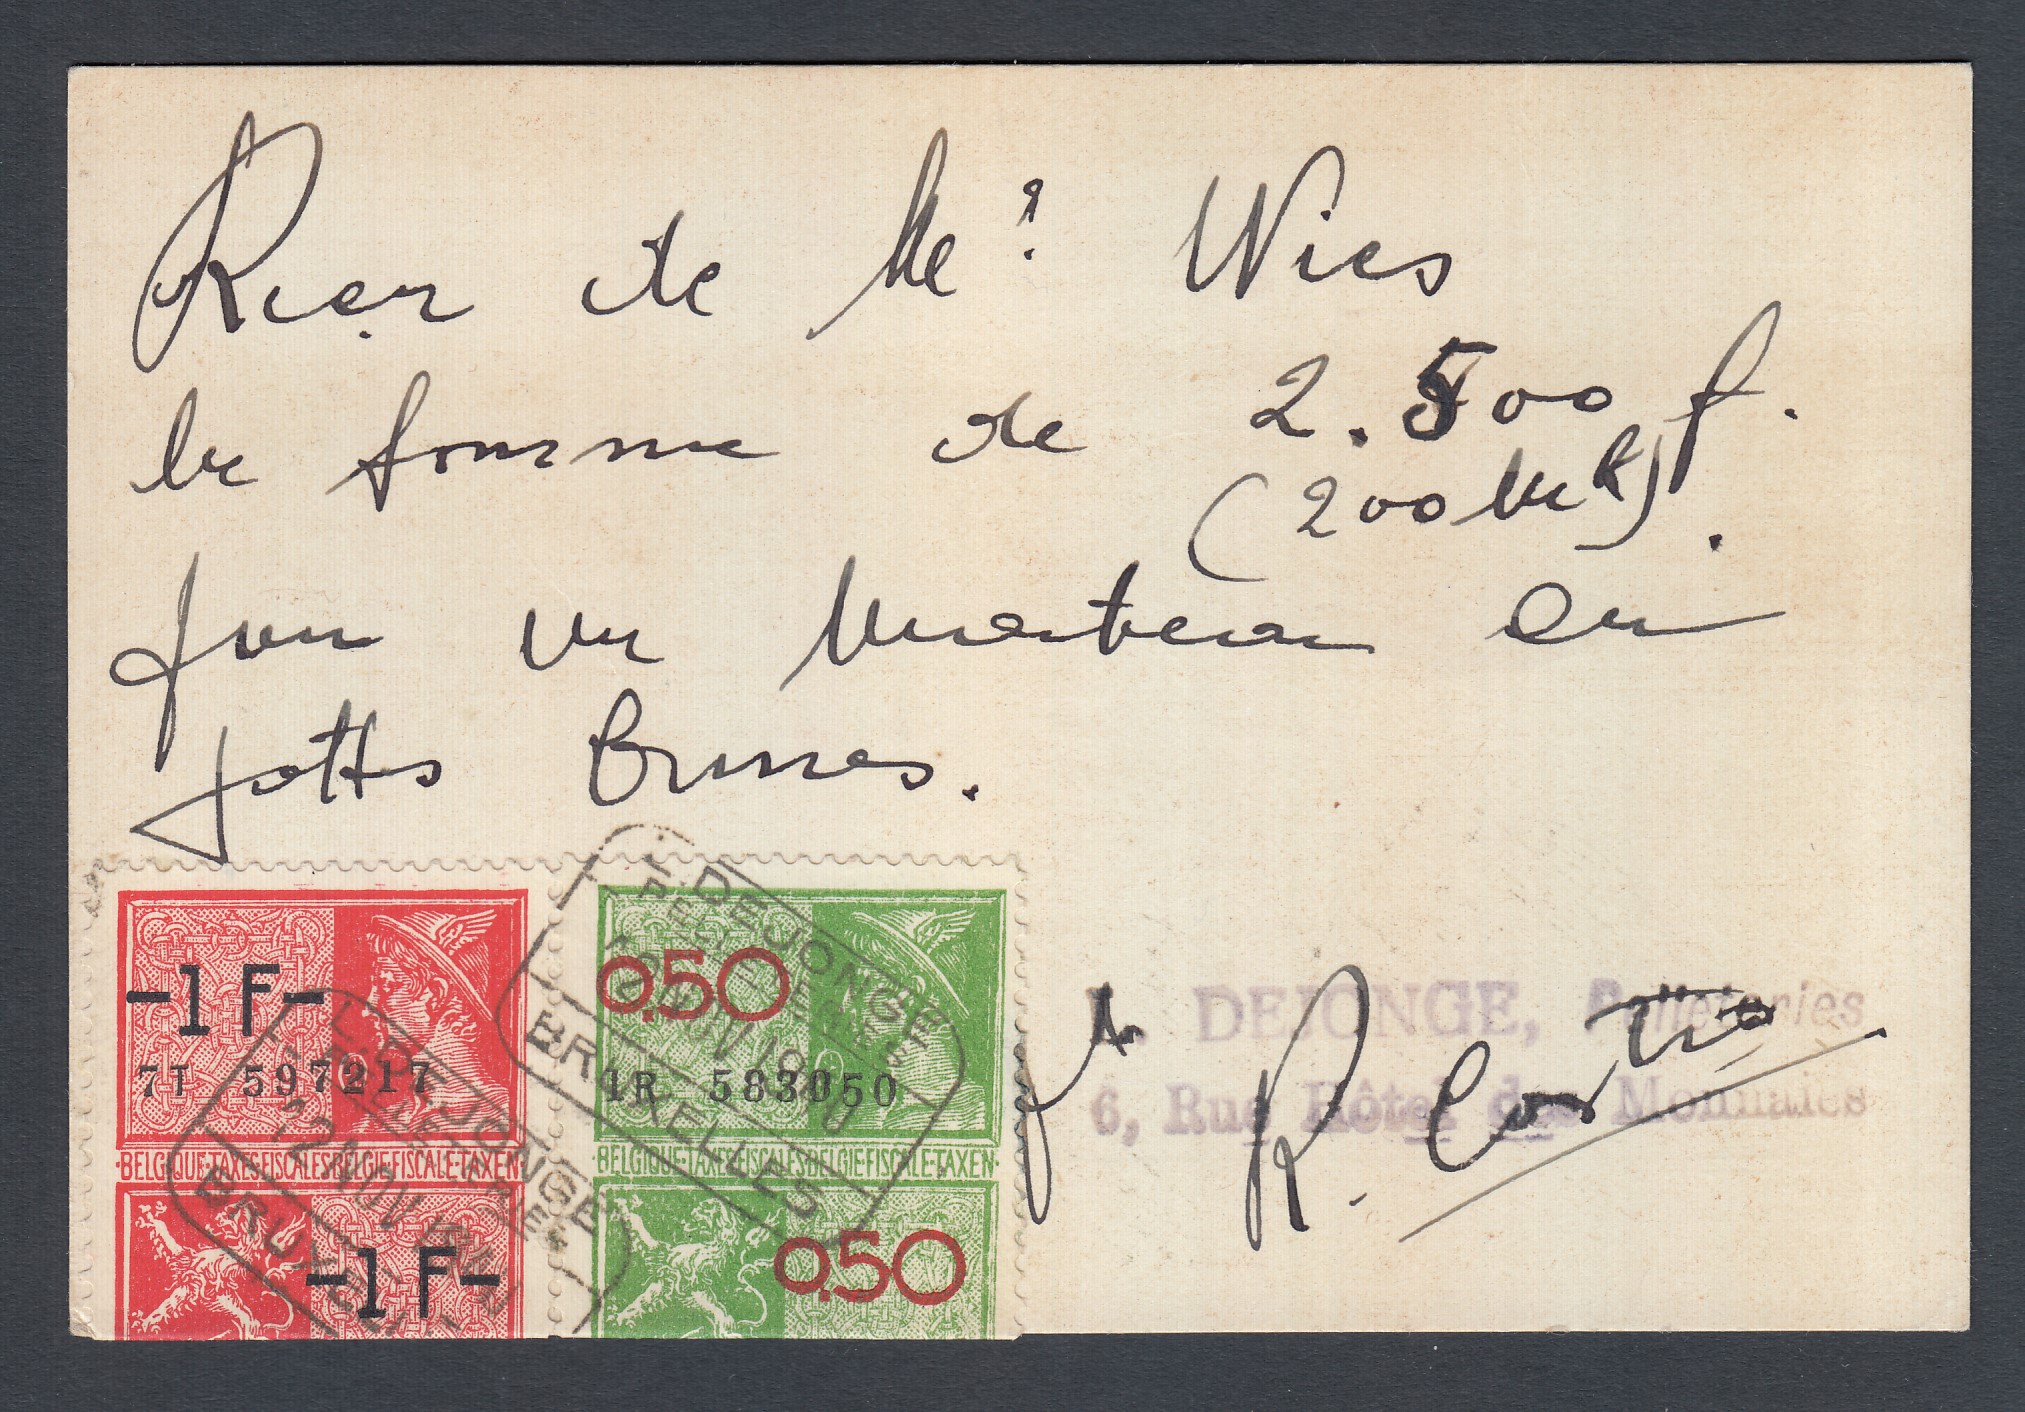 Reçu de Mr Wies
la somme de 2.500 f.
(200 Mk).
pour un Manteau en
pattes brunes.
-1F-
7I 597217
BELGIQUE·TAXES FISCALES BELGIE FISCALE TAXEN
-1F-
0,50
1R 583050
BELGIQUE·TAXES FISCALES BELGIE FISCALE TAXEN
0,50
L. DEJONGE
PELLETERIES
12 NOV
BRUXELLES
DEJONGE
PELLETERIES
12 NOV
BRUXELLES
DEJONGE, Pelleteries
6, Rue Hôtel des Monnaies
R.